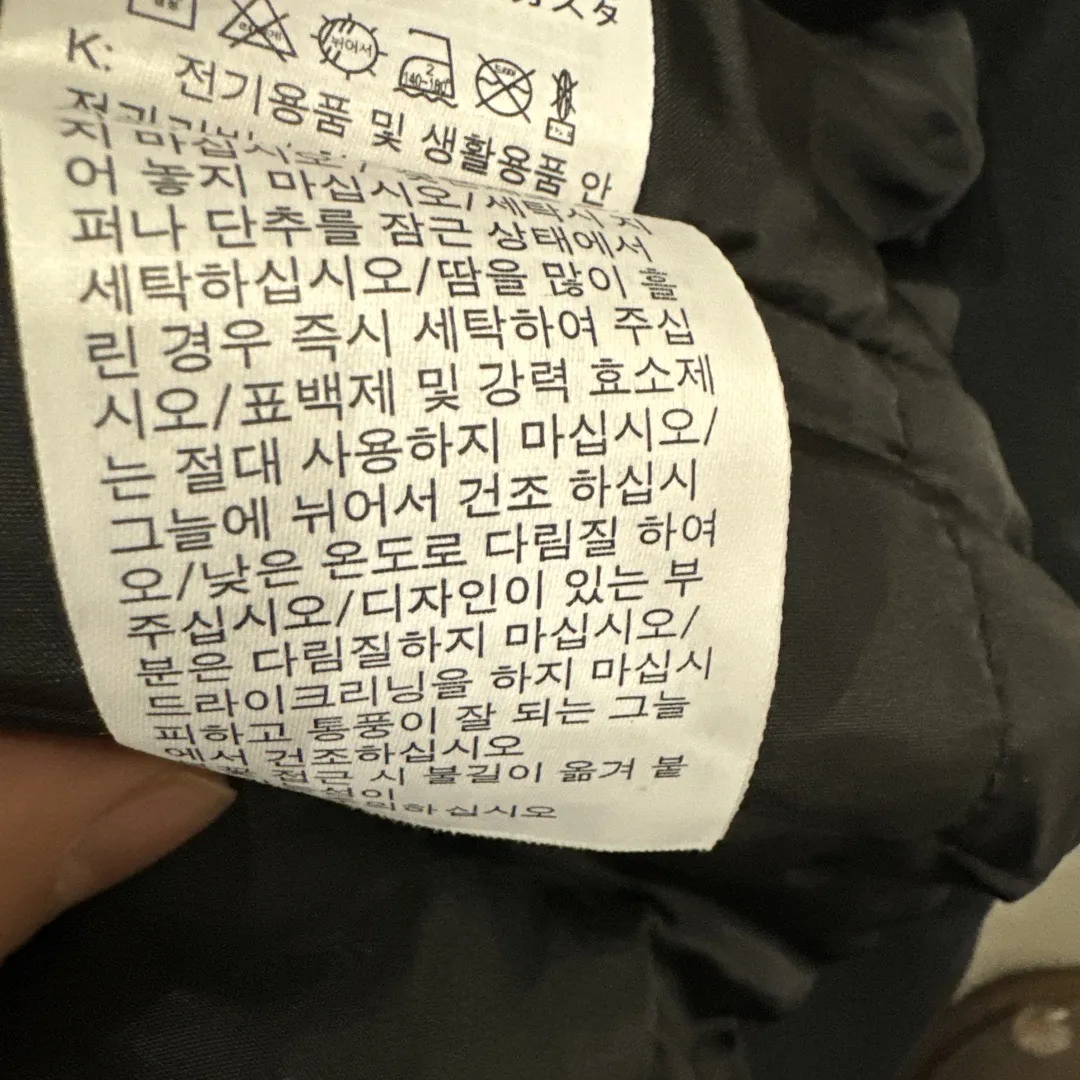 스タ
뉘어서
2
140-180
K: 전기용품 및 생활용품 안
지 마십시오/
어 놓지 마십시오/세탁시 지
퍼나 단추를 잠근 상태에서
세탁하십시오/땀을 많이 흘
린 경우 즉시 세탁하여 주십
시오/표백제 및 강력 효소제
는 절대 사용하지 마십시오/
그늘에 뉘어서 건조 하십시
오/낮은 온도로 다림질 하여
주십시오/디자인이 있는 부
분은 다림질하지 마십시오/
드라이크리닝을 하지 마십시
피하고 통풍이 잘 되는 그늘
에서 건조하십시오
접근 시 불길이 옮겨 붙
하십시오